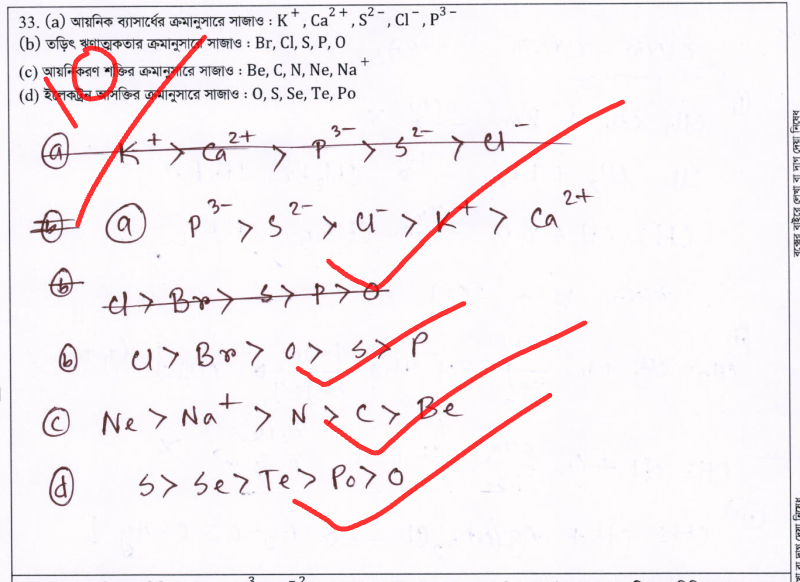 33. (a) আয়নিক ব্যাসার্ধের ক্রমানুসারে সাজাও : K⁺, Ca²⁺, S²⁻, Cl⁻, P³⁻
(b) তড়িৎ ঋণাত্মকতার ক্রমানুসারে সাজাও : Br, Cl, S, P, O
(c) আয়নিকরণ শক্তির ক্রমানুসারে সাজাও : Be, C, N, Ne, Na⁺
(d) ইলেকট্রন আসক্তির ক্রমানুসারে সাজাও : O, S, Se, Te, Po
(a) K⁺ > Ca²⁺ > P³⁻ > S²⁻ > Cl⁻
(b) (a) P³⁻ > S²⁻ > Cl⁻ > K⁺ > Ca²⁺
(b) Cl > Br > S > P > O
(b) Cl > Br > O > S > P
(c) Ne > Na⁺ > N > C > Be
(d) S > Se > Te > Po > O
বক্সের বাইরে লেখা বা দাগ দেয়া নিষেধ